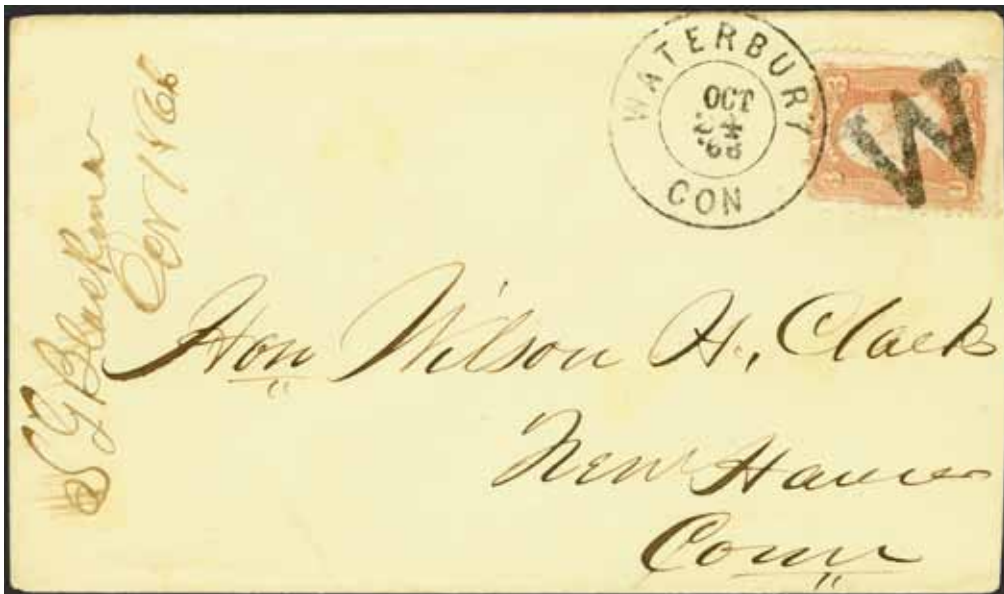 WATERBURY
OCT
24
'66
CON
3 3
W
S G Blackman
Oct 1866
Hon Wilson H. Clark
New Haven
Conn